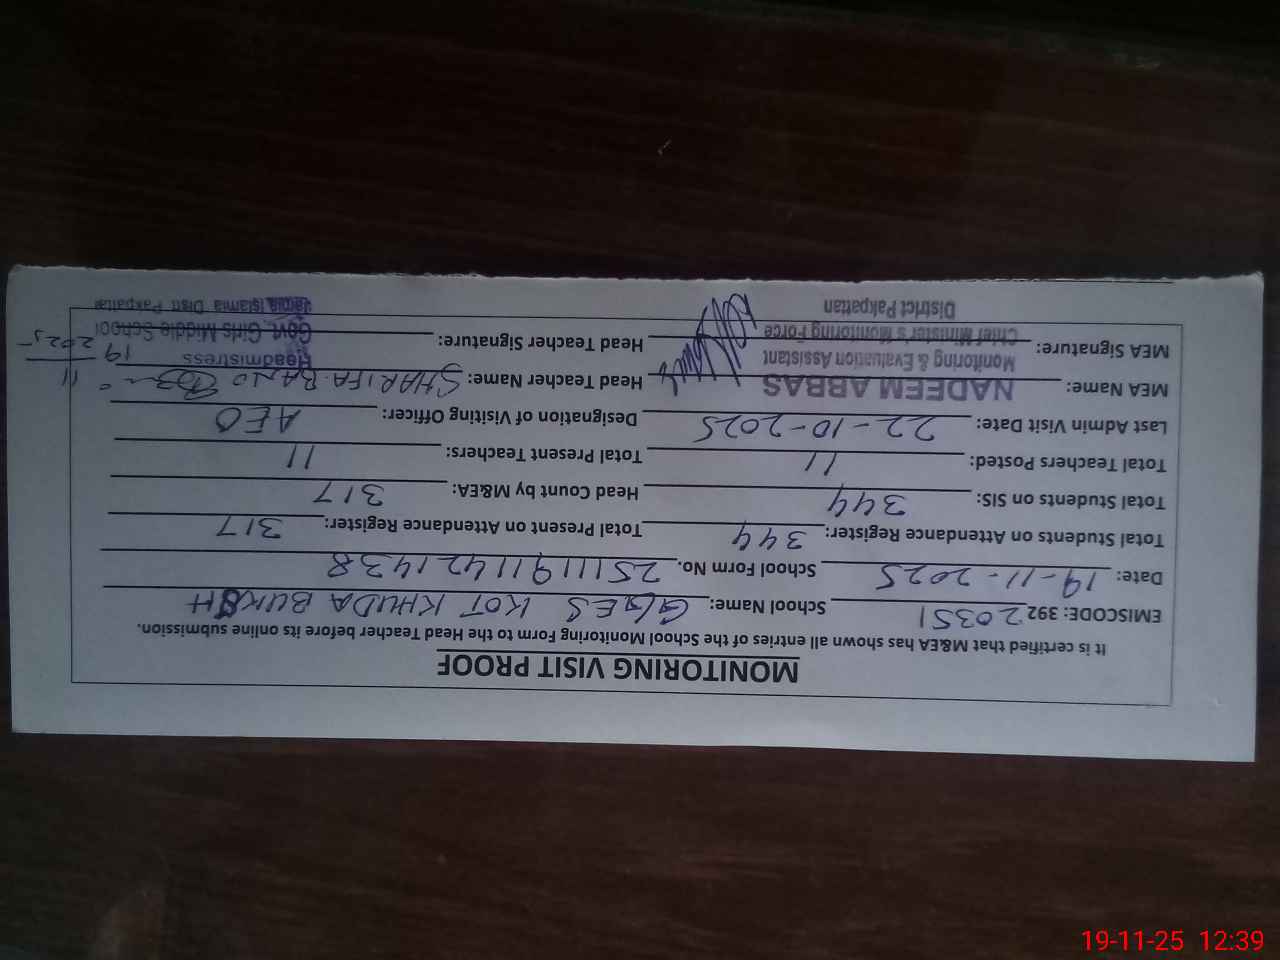 MONITORING VISIT PROOF
It is certified that M&EA has shown all entries of the School Monitoring Form to the Head Teacher before its online submission.
EMISCODE: 392 20351 School Name: GGES KOT KHUDA BUKSH
Date: 19-11-2025 School Form No. 25111911421438
Total Students on Attendance Register: 344 Total Present on Attendance Register: 317
Total Students on SIS: 344 Head Count by M&EA: 317
Total Teachers Posted: 11 Total Present Teachers: 11
Last Admin Visit Date: 22-10-2025 Designation of Visiting Officer: AEO
MEA Name: NADEEM ABBAS Head Teacher Name: SHARIFA BANO
Monitoring & Evaluation Assistant Headmistress
MEA Signature: Chief Minister's Monitoring Force Head Teacher Signature: Govt. Girls Middle School
District Pakpattan Jamia Islamia Distt Pakpattan
19
11
2025
19-11-25 12:39